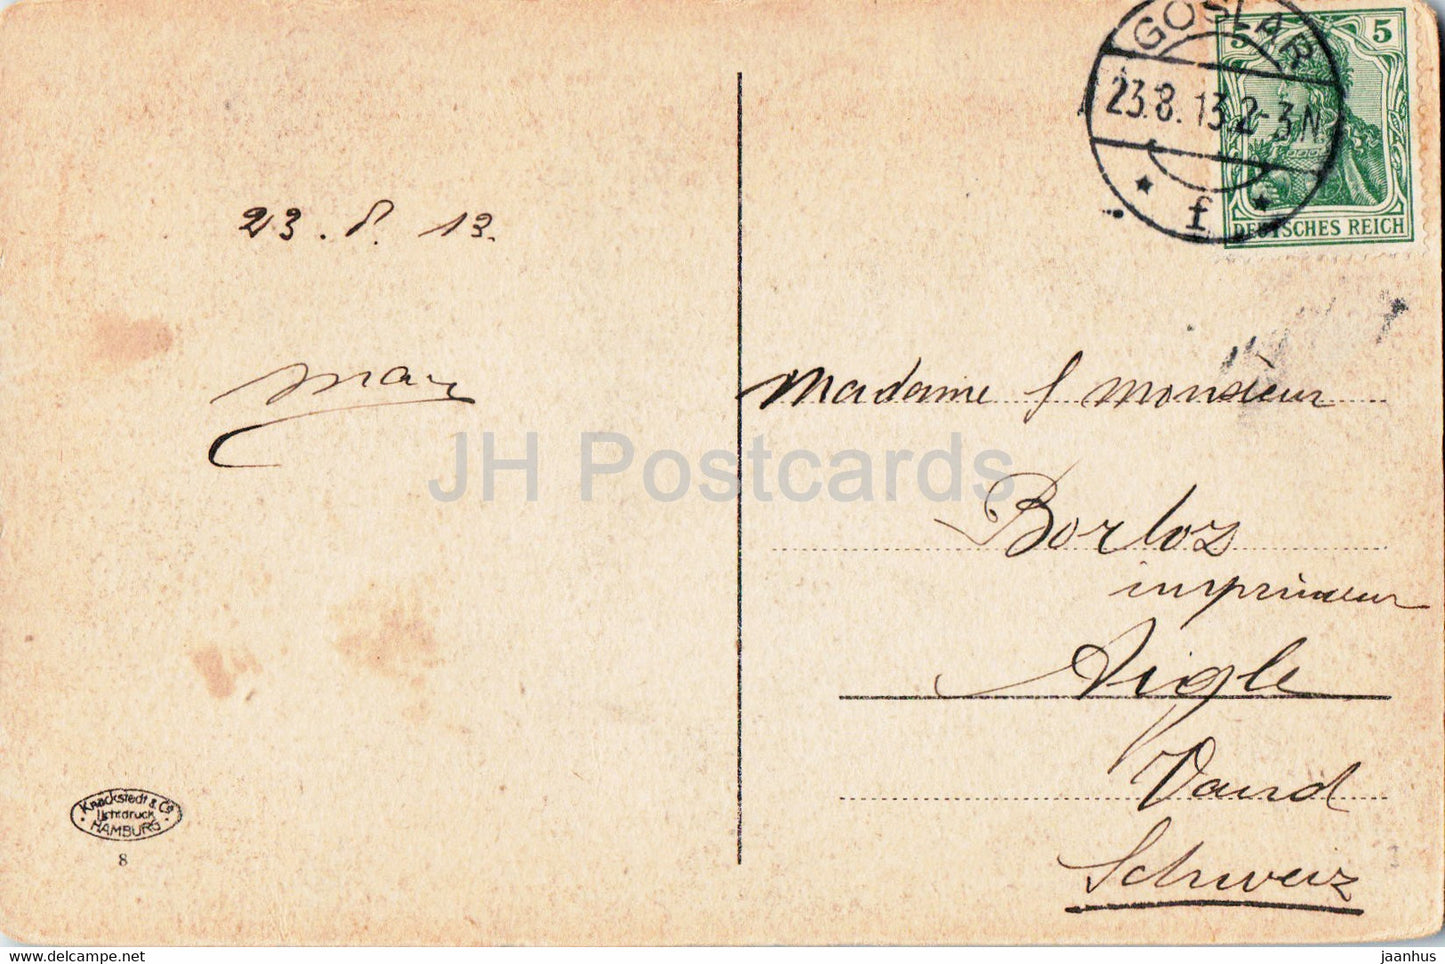 GOSLAR
23.8.13.2-3N
* f *
5 5
DEUTSCHES REICH
23. 8. 13.
Madame & Monsieur
Borloz
imprimeur
Aigle
Vaud
Schweiz
JH Postcards
Knackstedt & Co
Lichtdruck
HAMBURG
8
jaanhus